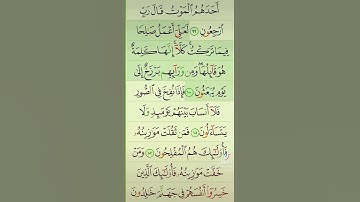 أَحَدَهُمُ ٱلْمَوْتُ قَالَ رَبِّ
ٱرْجِعُونِ ٩٩ لَعَلِّىٓ أَعْمَلُ صَٰلِحًا
فِيمَا تَرَكْتُ كَلَّآ إِنَّهَا كَلِمَةٌ
هُوَ قَآئِلُهَا وَمِن وَرَآئِهِم بَرْزَخٌ إِلَىٰ
يَوْمِ يُبْعَثُونَ ١٠٠ فَإِذَا نُفِخَ فِى ٱلصُّورِ
فَلَآ أَنسَابَ بَيْنَهُمْ يَوْمَئِذٍ وَلَا
يَتَسَآءَلُونَ ١٠١ فَمَن ثَقُلَتْ مَوَٰزِينُهُۥ
فَأُو۟لَٰٓئِكَ هُمُ ٱلْمُفْلِحُونَ ١٠٢ وَمَنْ
خَفَّتْ مَوَٰزِينُهُۥ فَأُو۟لَٰٓئِكَ ٱلَّذِينَ
خَسِرُوٓا۟ أَنفُسَهُمْ فِى جَهَنَّمَ خَٰلِدُونَ